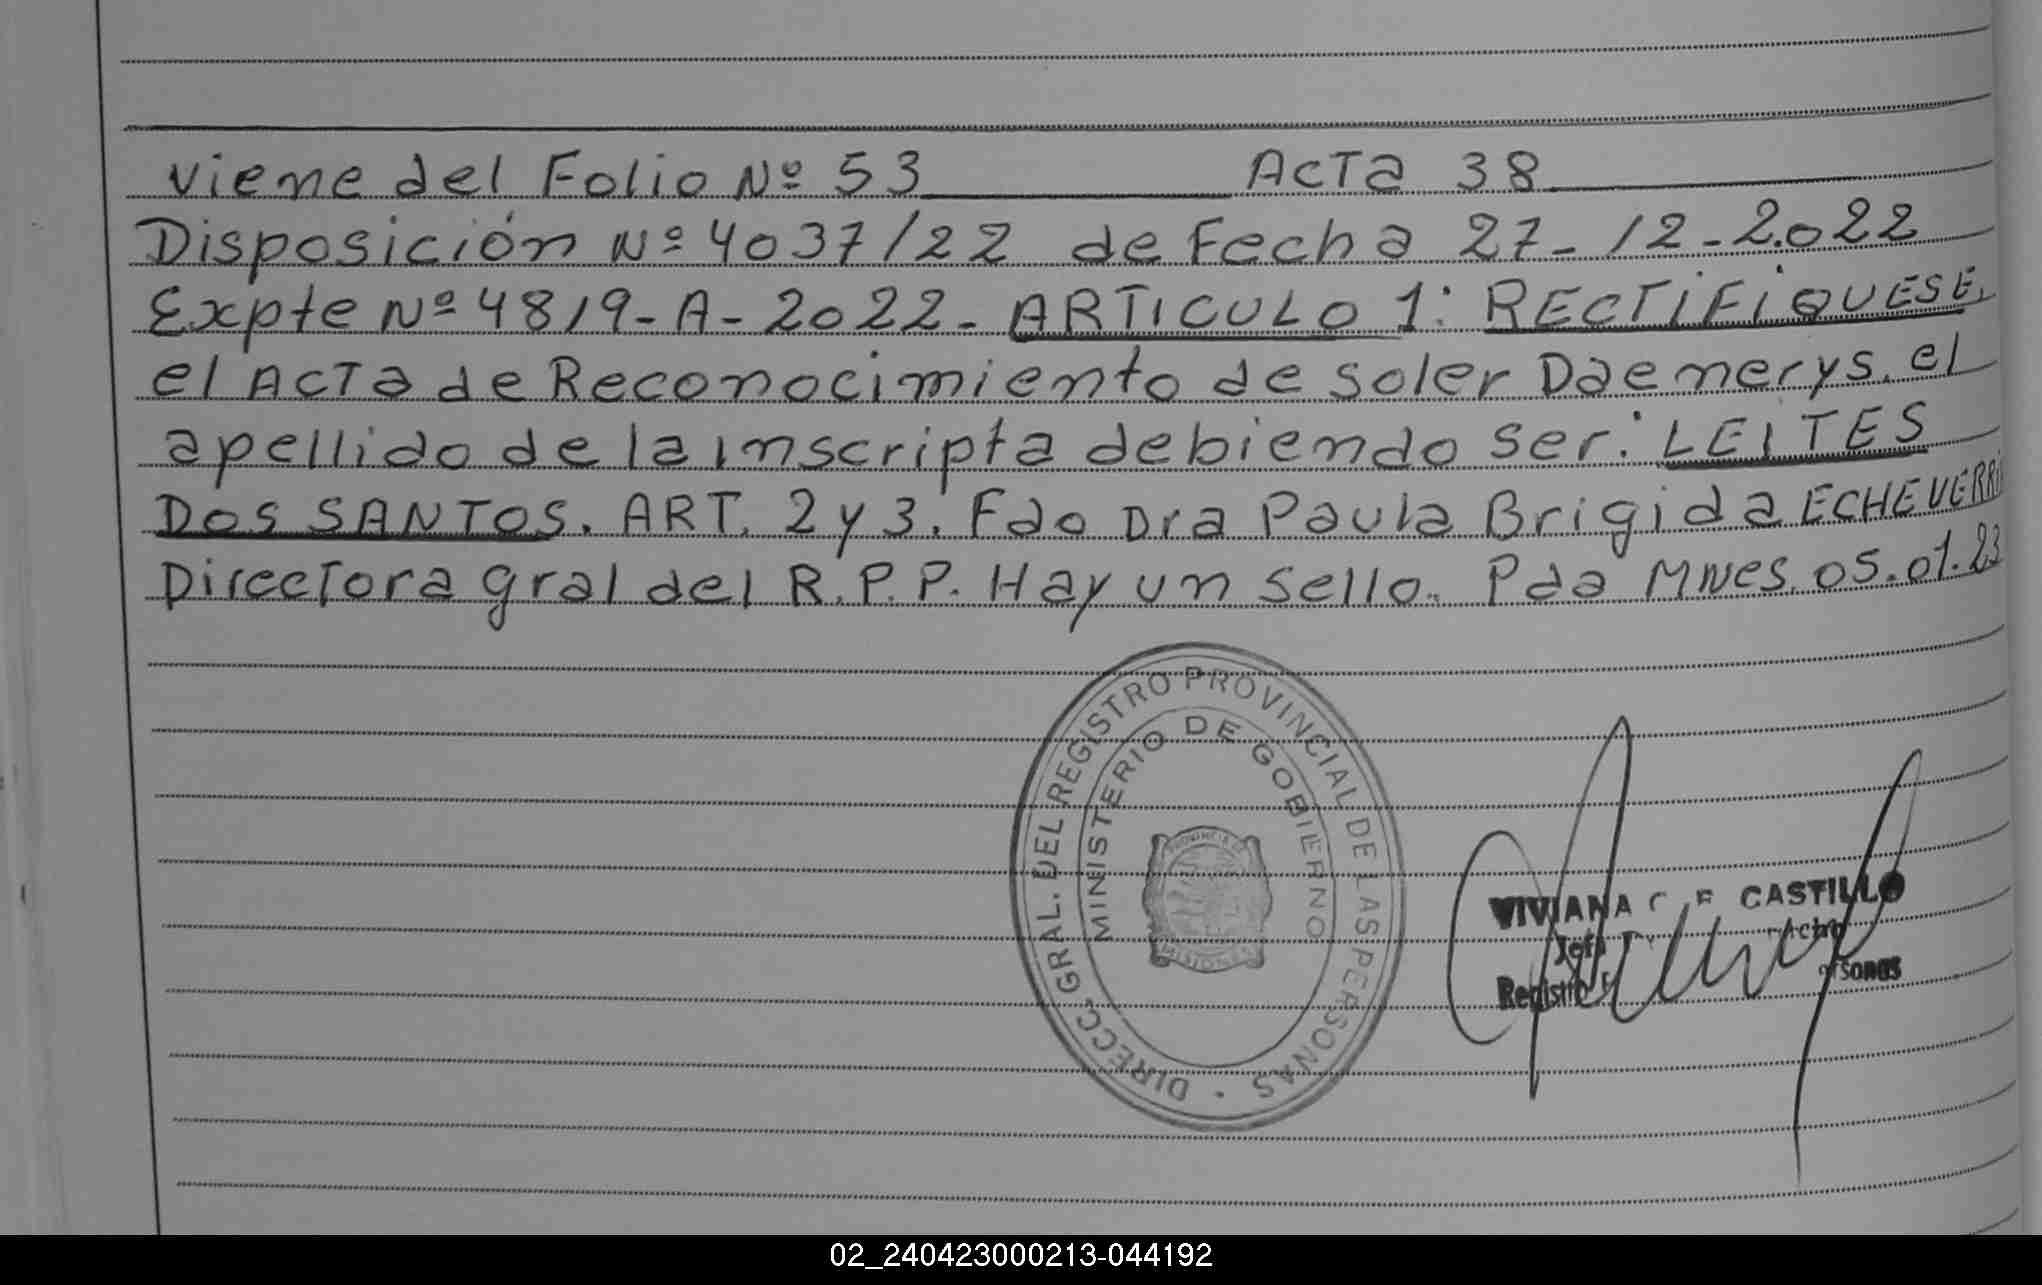 Viene del Folio Nº 53 ActA 38
Disposición Nº 4037/22 de Fecha 27-12-2.022
Expte Nº 4819-A-2022. ARTICULO 1: RECTIFIQUESE,
el ActA de Reconocimiento de Soler Daenerys. el
apellido de la inscripta debiendo ser: LEITES
DOS SANTOS. ART. 2 y 3. Fdo Dra Paula Brigida ECHEVERRI
Directora gral del R.P.P. Hay un sello. Pda MNes. 05.01.23
DIRECC. GRAL. DEL REGISTRO PROVINCIAL DE LAS PERSONAS
MINISTERIO DE GOBIERNO
PROVINCIA DE
MISIONES
VIVIANA CASTILLO
Registro
02_240423000213-044192